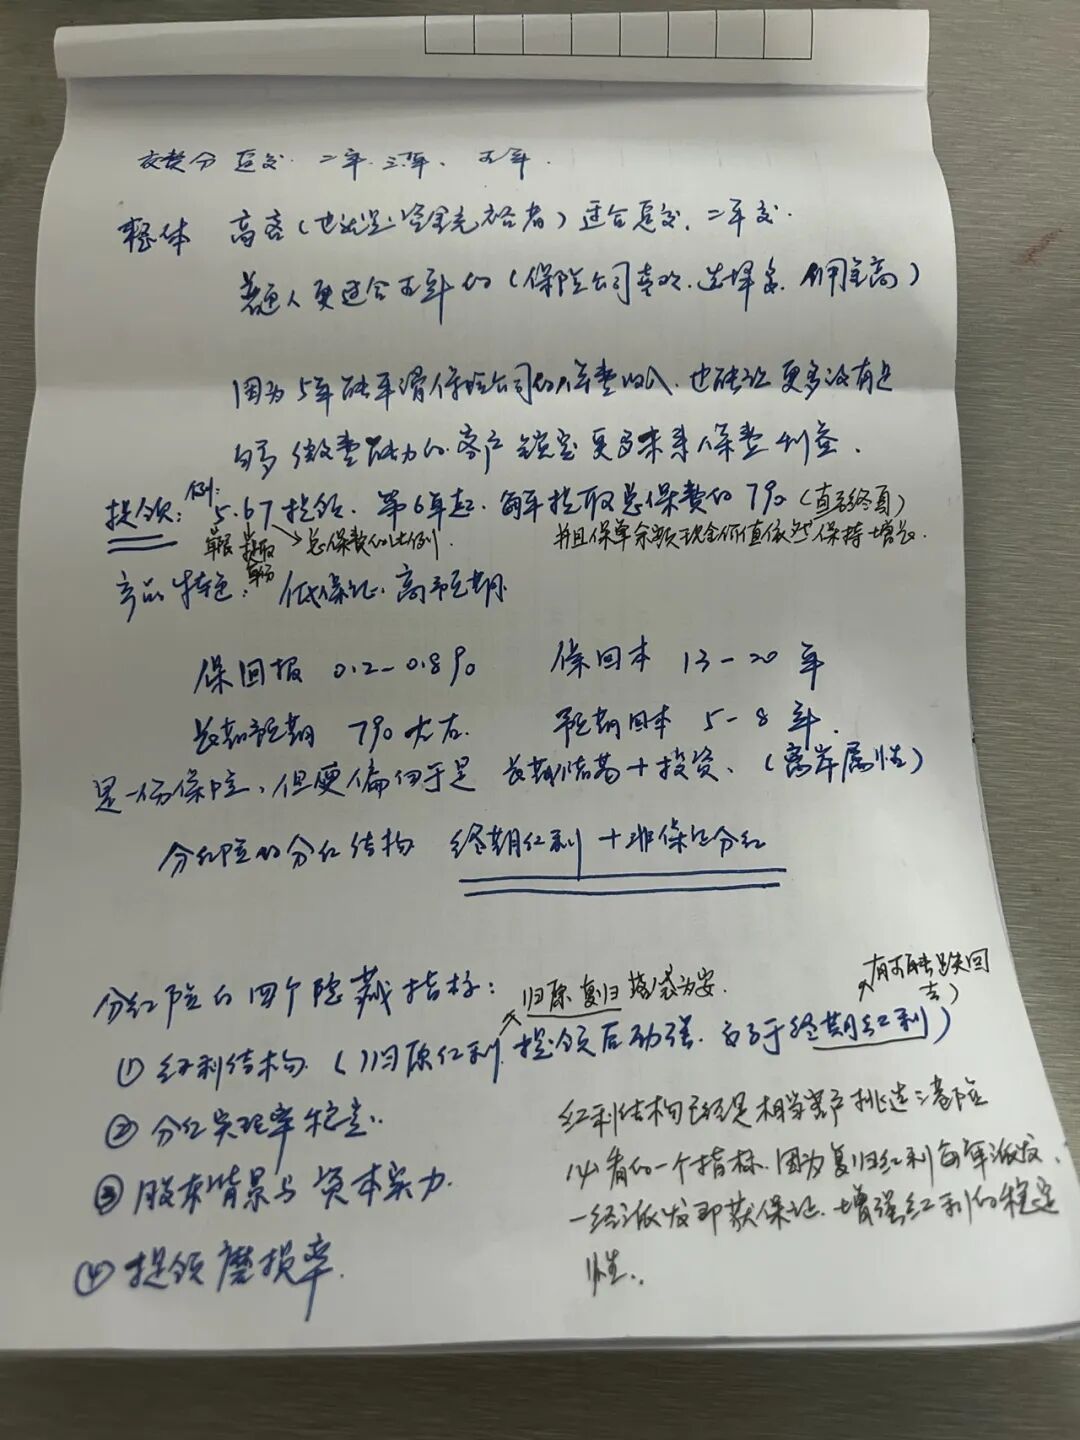 交费分 趸交. 二年. 三年、 五年.
整体 高客(也就是资金充裕者)适合趸交、二年交.
普通人更适合五年的(保险公司喜欢.选择多.佣金高)
因为5年能平滑保险公司的保费收入.也能让更多没有足
够多 缴费能力的客户锁定更多未来保费利益.
提领: 例: 5.67提领. 第6年起.每年提取总保费的7%(直至终身)
年限 提取年份 总保费的比例. 并且保单余额现金价值依然保持增长.
产品特色: 低保证.高预期
保回报 0.2-0.8% 保回本 13-20年
长期预期 7%左右. 预期回本 5-8年.
是一份保险,但更偏向于是 长期储蓄+投资、(离岸属性)
分红险的分红结构 终期红利+非保证分红
分红险的四个隐藏指标: 归原 复归 落袋为安. 有可能跌回去)
① 红利结构. (归原红利.提领后劲强.好于终期红利)
② 分红实现率稳定.
③ 股东背景与资本实力.
④ 提领磨损率.
红利结构已经是相当客户挑选港险
必看的一个指标.因为复归红利每年派发.
一经派发即获保证.增强红利的稳定
性..